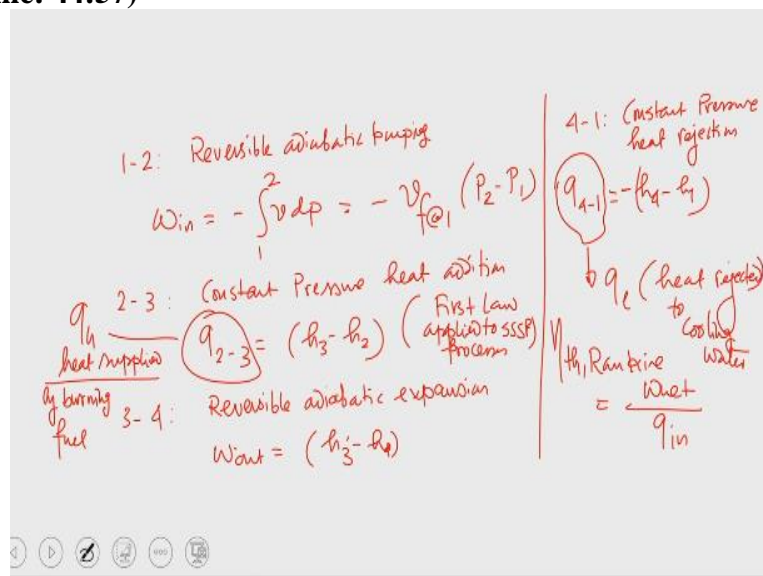 me: 44:57)
1-2: Reversible adiabatic pumping
Win = - ∫₁² v dp = - v_f@1 (P2 - P1)
2-3: Constant Pressure heat addition
qh
heat supplied
by burning
fuel
q2-3 = (h3 - h2) (First Law
applied to SSSF
Processes
3-4: Reversible adiabatic expansion
Wout = (h3 - h4)
4-1: Constant Pressure
heat rejection
q4-1 = -(h4 - h1)
qe (heat rejected)
to
Cooling
Water
ηth, Rankine
= Wnet / qin